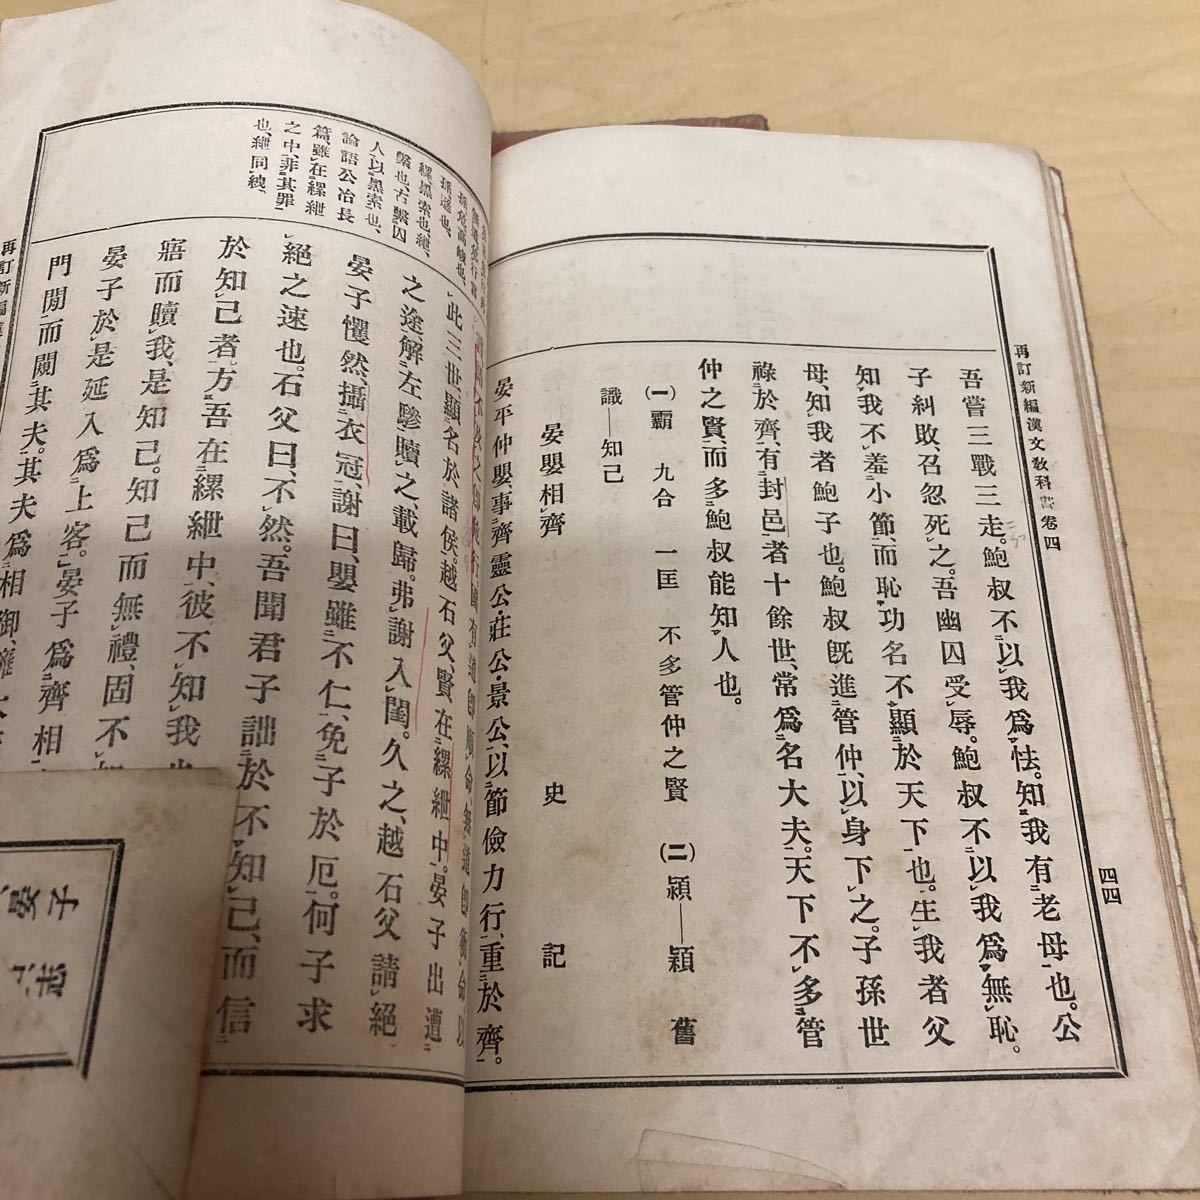 再訂新編漢文敎科書卷四
四四
吾嘗三戰三走。鮑叔不以我爲怯。知我有老母也。公
子糾敗、召忽死之。吾幽囚受辱。鮑叔不以我爲無恥。
知我不羞小節、而恥功名不顯於天下也。生我者父
母、知我者鮑子也。鮑叔旣進管仲、以身下之。子孫世
祿於齊、有封邑者十餘世、常爲名大夫。天下不多管
仲之賢、而多鮑叔能知人也。
(一)霸 九合 一匡 不多管仲之賢 (二)穎—頴 舊
識—知己
晏嬰相齊 史記
晏平仲嬰、事齊靈公・莊公・景公、以節儉力行、重於齊。
此三世、顯名於諸侯。越石父賢、在縲紲中。晏子出遭
之途、解左驂贖之載歸。弗謝入閨。久之、越石父請絕
晏子戄然、攝衣冠、謝曰、嬰雖不仁、免子於厄。何子求
絕之速也。石父曰、不然。吾聞君子詘於不知己、而信
於知己者。方吾在縲紲中、彼不知我也
寤而贖我、是知己。知己而無禮、固不
晏子於是延入爲上客。晏子爲齊相
門閒而闚其夫。其夫爲相御、擁大
縲黑索也、紲、
繫也、古繫囚
人、以黑索也、
論語公冶長
篇、雖在縲紲
之中、非其罪
也、紲同絏、
再訂新編
晏子
志